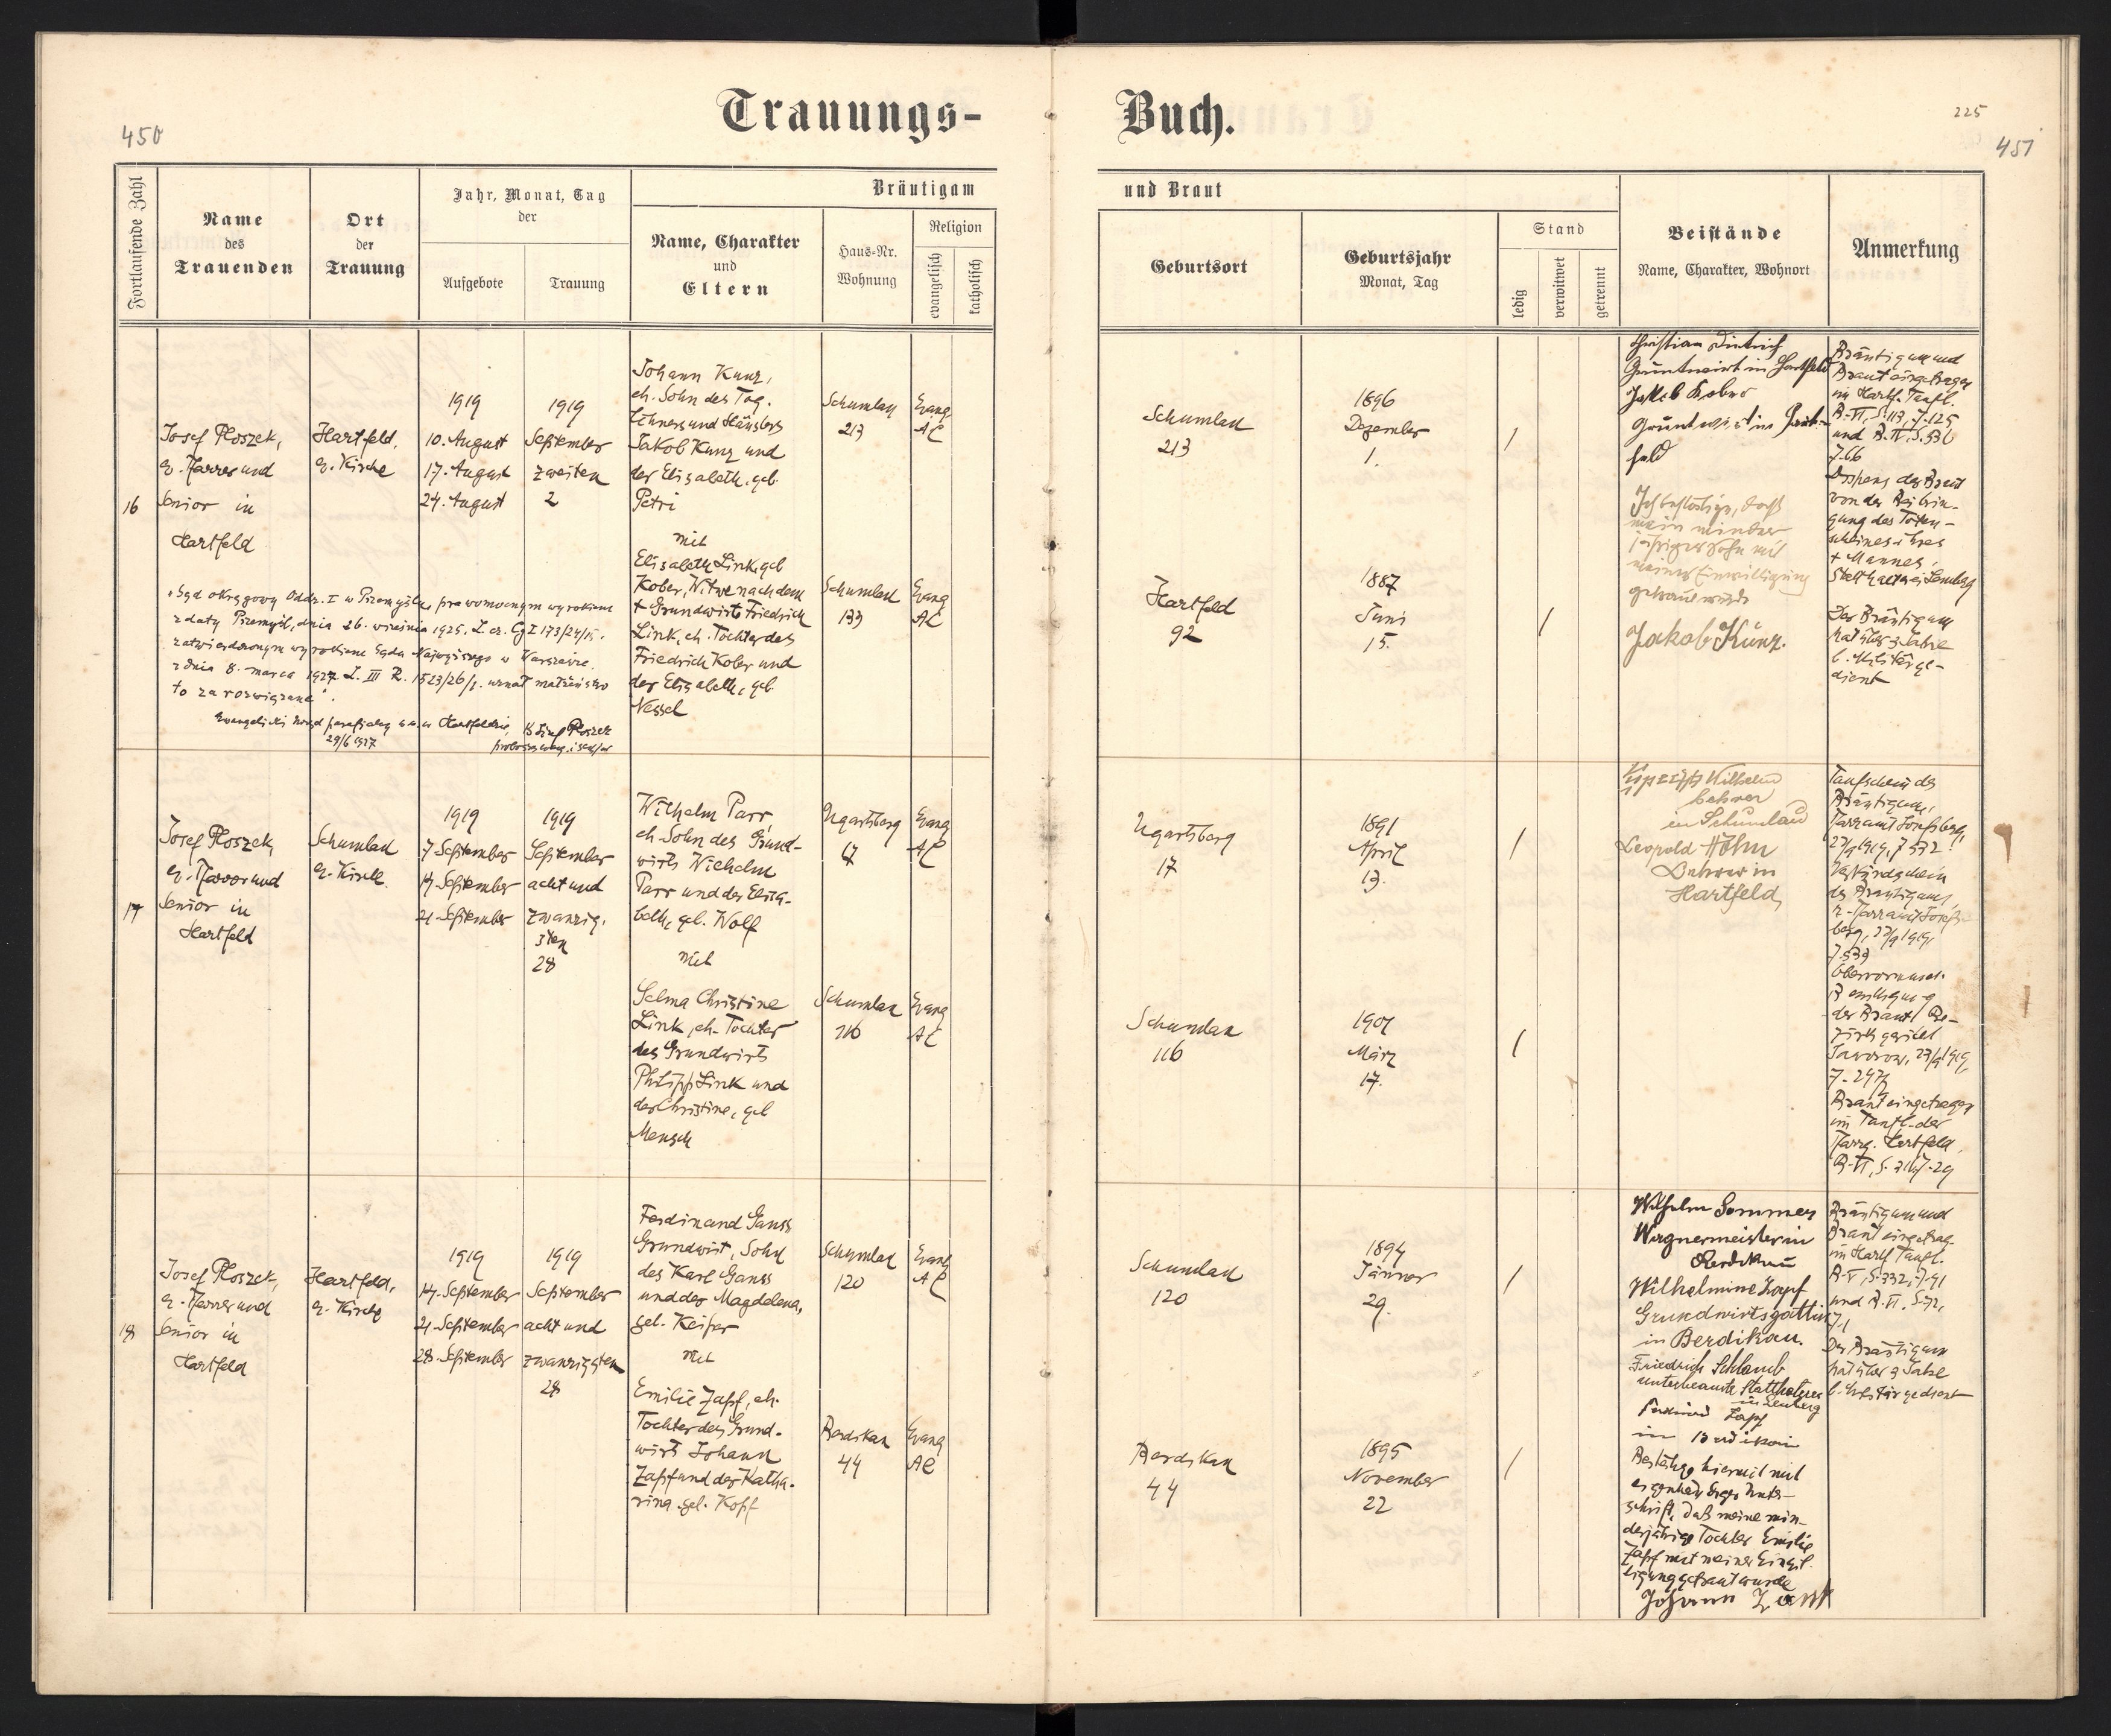 450
Trauungs-
Buch.
225
451
Fortlaufende Zahl
Name
des
Trauenden
Ort
der
Trauung
Jahr, Monat, Tag
der
Aufgebote
Trauung
Bräutigam
Name, Charakter
und
Eltern
Haus-Nr.
Wohnung
Religion
evangelisch
katholisch
und Braut
Geburtsort
Geburtsjahr
Monat, Tag
Stand
ledig
verwitwet
getrennt
Beistände
Name, Charakter, Wohnort
Anmerkung
16
Josef Ploszek,
e. Pfarrer und
Senior in
Hartfeld
Hartfeld,
e. Kirche
1919
10. August
17. August
24. August
1919
September
zweiten
2
Johann Kunz,
eh. Sohn des Tag-
löhners und Häuslers
Jakob Kunz und
der Elisabeth, geb.
Petri
mit
Elisabeth Link, geb
Kober, Witwe nach dem
+ Grundwirts Friedrich
Link, eh. Tochter des
Friedrich Kober und
der Elisabeth, geb.
Nessel
Schumlau
213
Evang
AC
Schumlau
133
Evang
AC
"Sąd okręgowy Oddz. I w Przemyślu, prawomocnym wyrokiem
z daty Przemyśl, dnia 26. września 1925, L. cz. Cg I 173/24/15.
zatwierdzonym wyrokiem Sądu Najwyższego w Warszawie
z dnia 8. marca 1927 L. III R. 1523/26/1. uznał małżeństwo
to za rozwiązane".
Ewangelicki Urząd parafialny a.w. w Hartfeldzie,
29/6 1927
Josef Ploszek
Schumlau
213
1896
Dezember
1.
Hartfeld
92
1887
Juni
15.
Christian Dietrich
Grundwirt in Hartfeld
Jakob Kober
Grundwirt in Hart-
feld
Ich bestätige, daß
mein minder
jähriger Sohn mit
meiner Einwilligung
getraut wurde
Jakob Künz.
Bräutigam und
Braut eingetragen
im Hartf. Taufb.
B. VI, S. 113, Z. 125
und B. IV, S. 536
Z. 66
Dispens der Braut
von der Beibrin-
gung des Toten-
scheines ihres
+ Mannes,
Statthalterei Lemberg
Der Bräutigam
hat über 3 Jahre
b. Militär ge-
dient
17
Josef Ploszek,
e. Pfarrer und
Senior in
Hartfeld
Schumlau
e. Kirche
1919
7 September
14 September
21 September
1919
September
acht und
zwanzig-
sten
28
Wilhelm Parr
eh. Sohn des Grund-
wirts Wilhelm
Parr und der Elisa-
beth, geb. Wolf
mit
Selma Christine
Link, eh. Tochter
des Grundwirts
Philipp Link und
der Christine, geb
Mensch
Ugartsberg
17
Evang
AC
Schumlau
116
Evang
AC
Ugartsberg
17
1891
April
13.
Schumlau
116
1901
März
17.
Wilhelm
Lehrer
in Schumlau
Leopold Höhn
Lehrer in
Hartfeld,
Taufschein des
Bräutigams,
Pfarramt Josefsberg,
23/9 1919, Z 532
Verkündschein
des Bräutigams,
e. Pfarramt Josefs-
berg, 23/9 1919,
Z. 533
Obervormund.
Bewilligung
der Braut, Be-
zirksgericht
Jaworow, 23/9 1919,
Braut eingetragen
im Taufb. der
Pfarrg. Hartfeld,
18
Josef Ploszek,
e. Pfarrer und
Senior in
Hartfeld
Hartfeld,
e. Kirche
1919
14. September
21. September
28. September
1919
September
acht und
zwanzigsten
28
Ferdinand Ganss
Grundwirt, Sohn
des Karl Ganss
und der Magdalena,
geb. Keiper
mit
Emilie Zapf, eh.
Tochter des Grund-
wirts Johann
Zapf und der Katha-
rina geb. Kopf
Schumlau
120
Evang
AC
Berdikau
44
Evang
AC
Schumlau
120
1894
Jänner
29.
Berdikau
44
1895
November
22
Wilhelm Sommer
Wagnermeister in
Berdikau
Wilhelmine Zapf
Grundwirtsgattin
in Berdikau.
Friedrich Schlamb
unterbeamte Statthalterei
in Lemberg
Ferdinand Zapf
in Berdikau
Bestätige hiermit mit
eigenhändiger Unter-
schrift, daß meine min-
derjährige Tochter Emilie
Zapf mit meiner Einwil-
ligung getraut wurde
Johann Zapf
Bräutigam und
Braut eingetrag.
im Hartf. Taufb.
B. V, S. 332, Z. 91
und B. VI. S. 72,
Z. 1
Der Bräutigam
hat über 3 Jahre
b. Militär gedient